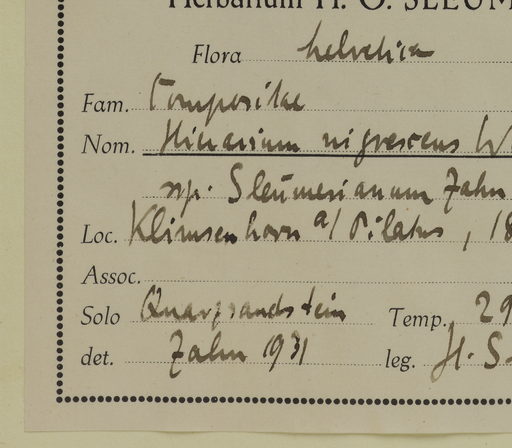 Herbarium H. O. SLEUM
Flora helvetica
Fam. Compositae
Nom. Hieracium nigrescens W
ssp. Sleumerianum Zahn
Loc. Klimsenhorn a/ Pilatus, 18
Assoc.
Solo Quarzsandstein Temp. 29
det. Zahn 1931 leg. H. S